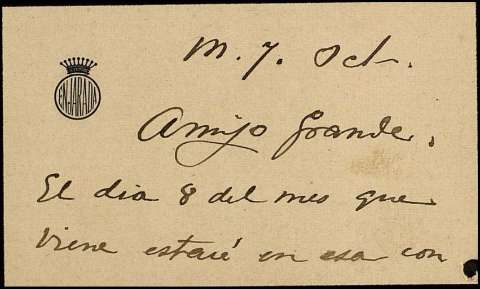 M. 7. Oct.
ENJARADA
Amigo Grande.
El dia 8 del mes que
viene estaré en esa con